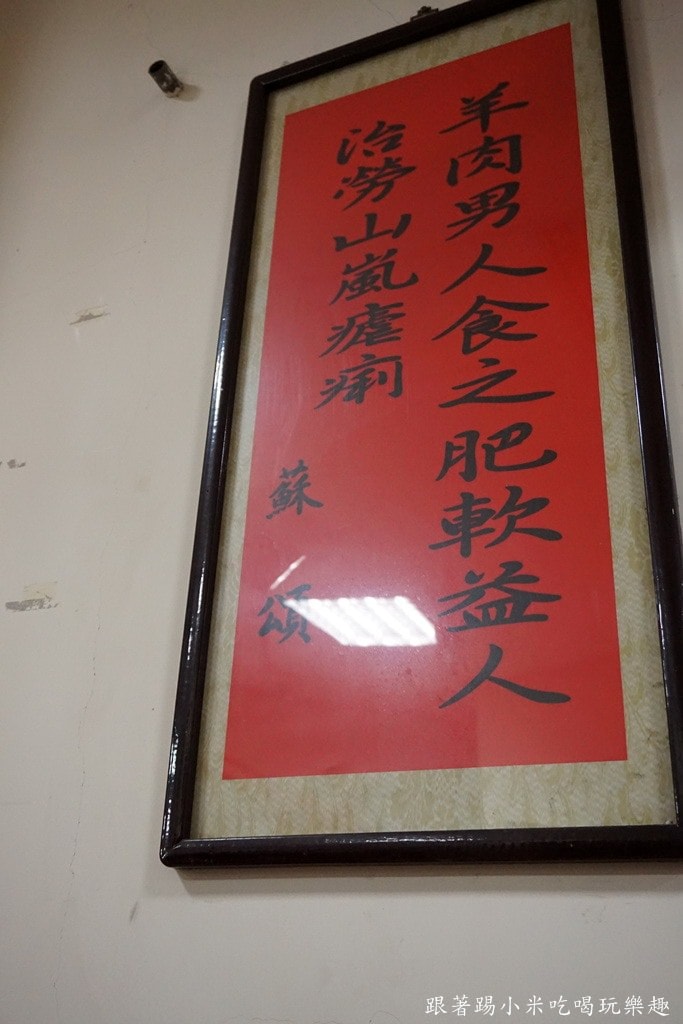 羊肉男人食之肥軟益人
治勞山嵐瘧痢
蘇頌
跟著踢小米吃喝玩樂趣